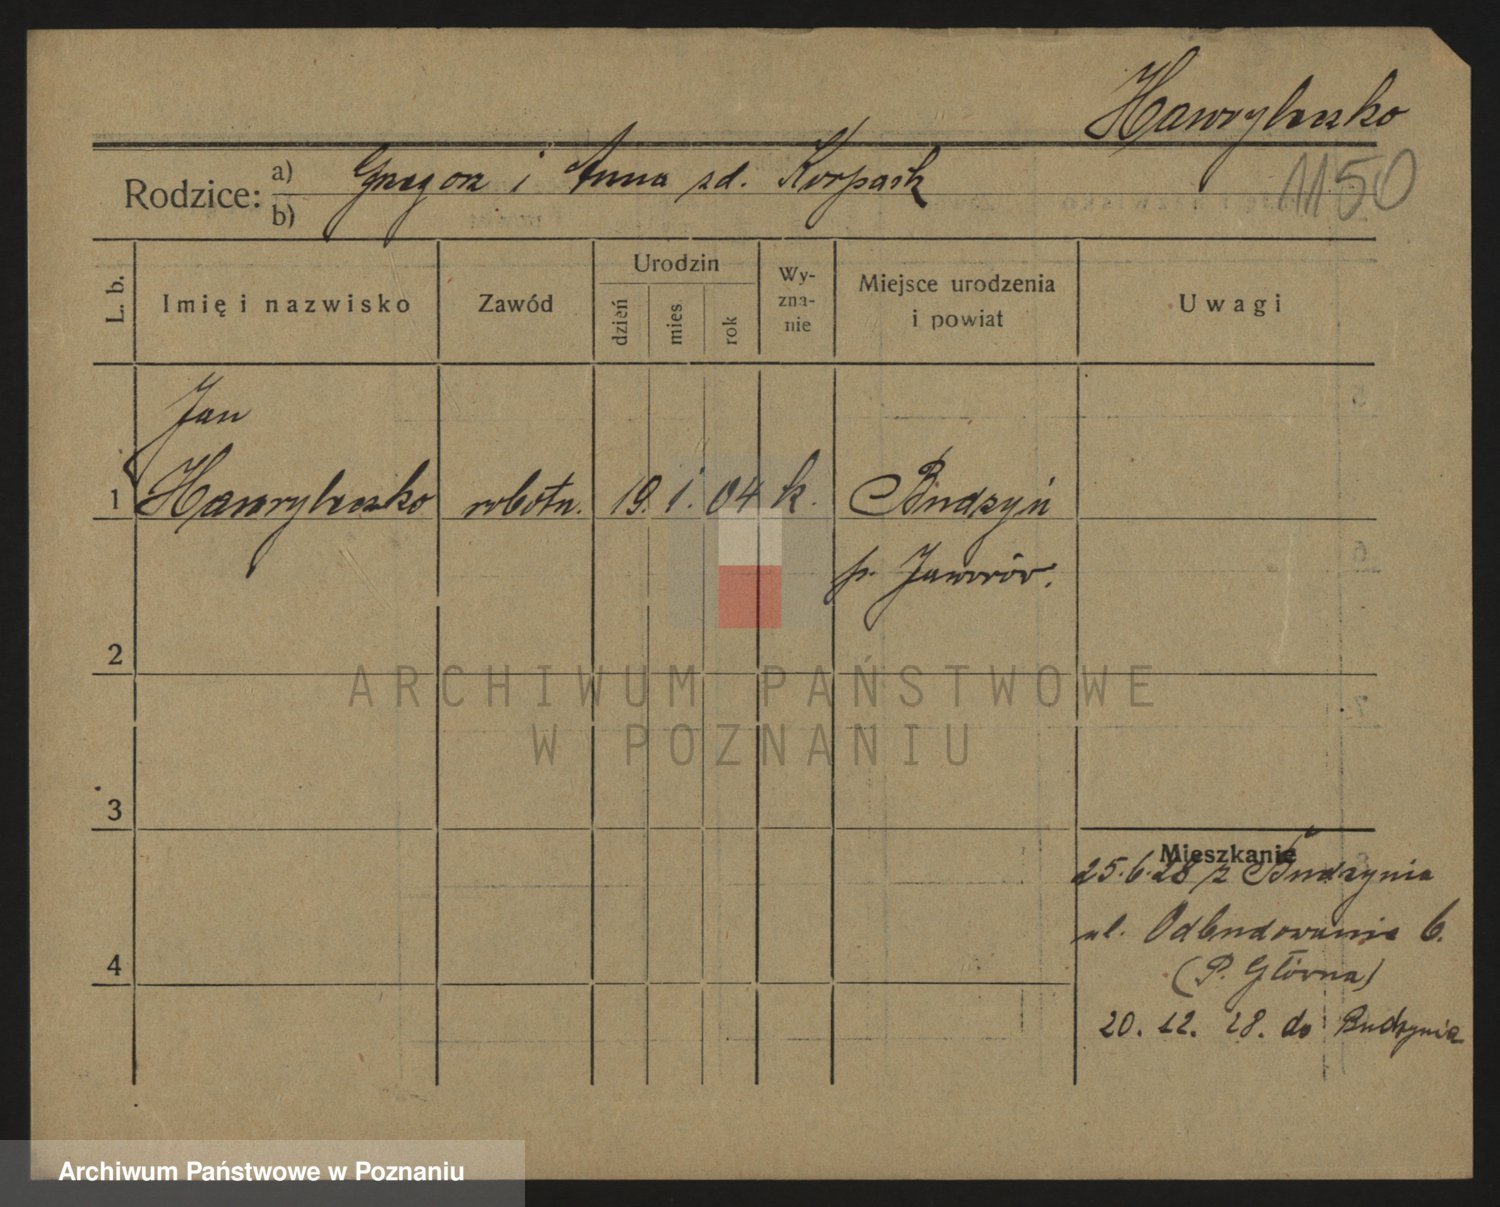 Hawryleszko
1150
Rodzice: a) Grzegorz i Anna zd. Korpach
b)
L. b.
Imię i nazwisko
Zawód
Urodzin
dzień
mies
rok
Wy-
zna-
nie
Miejsce urodzenia
i powiat
Uwagi
Jan
1 Hawryleszko robotn. 19. 1. 04 k. Budzyń
p. Jaworów.
2
ARCHIWUM PAŃSTWOWE
W POZNANIU
3
Mieszkanie
25.6.28 z Budzynia
ul. Odbudowania 6.
4
(P. Główna)
20. 12. 28. do Budzynia
Archiwum Państwowe w Poznaniu